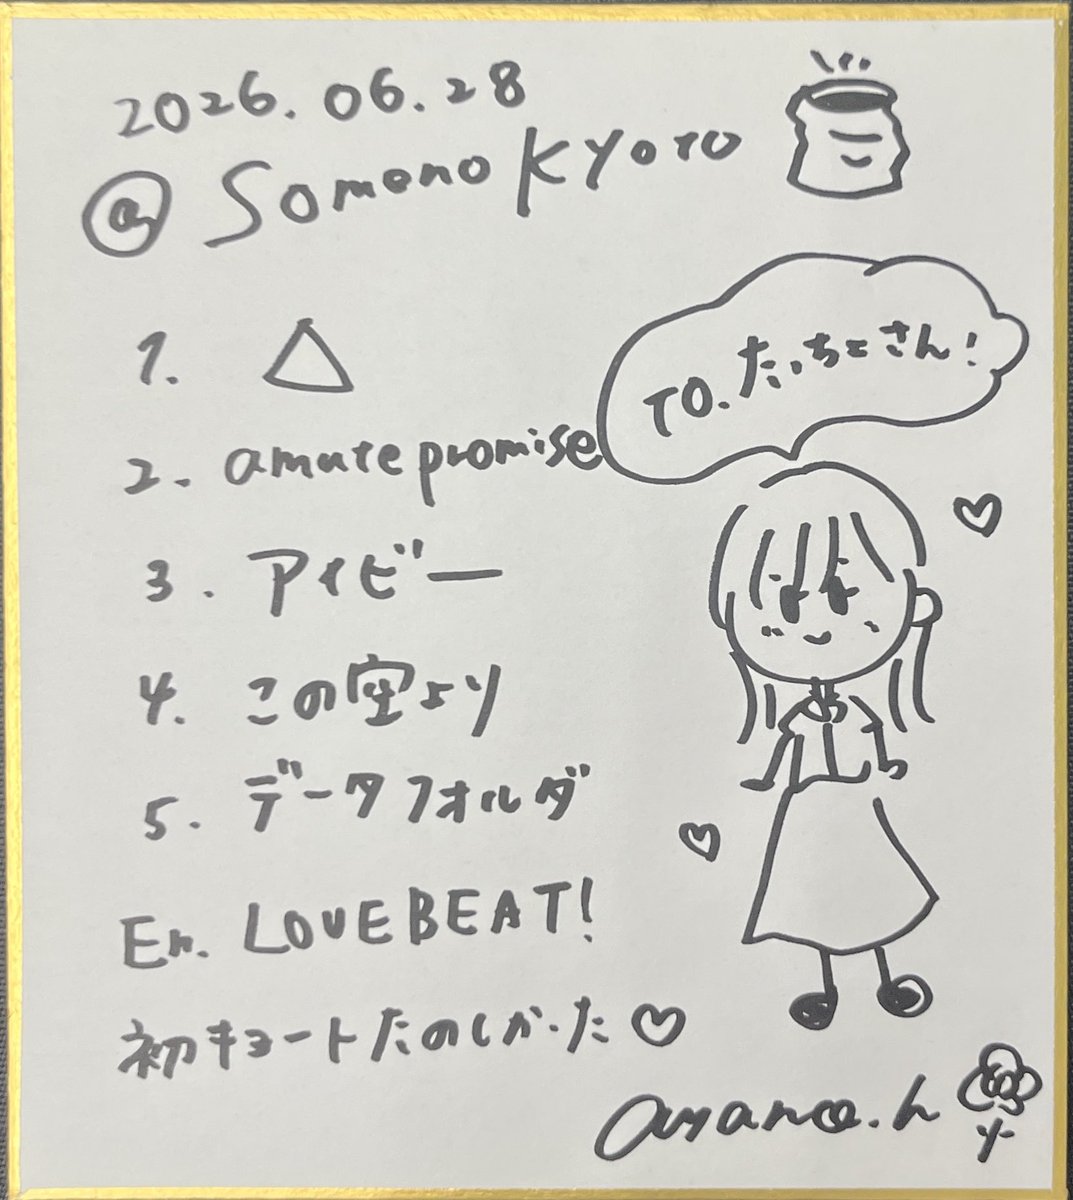 2026.06.28
@ Someno Kyoto
1. △
TO. たいちょさん!
2. amate promise
3. アイビー
4. この空より
5. データフォルダ
En. LOVE BEAT!
初キョートたのしかった♡
ayano.h